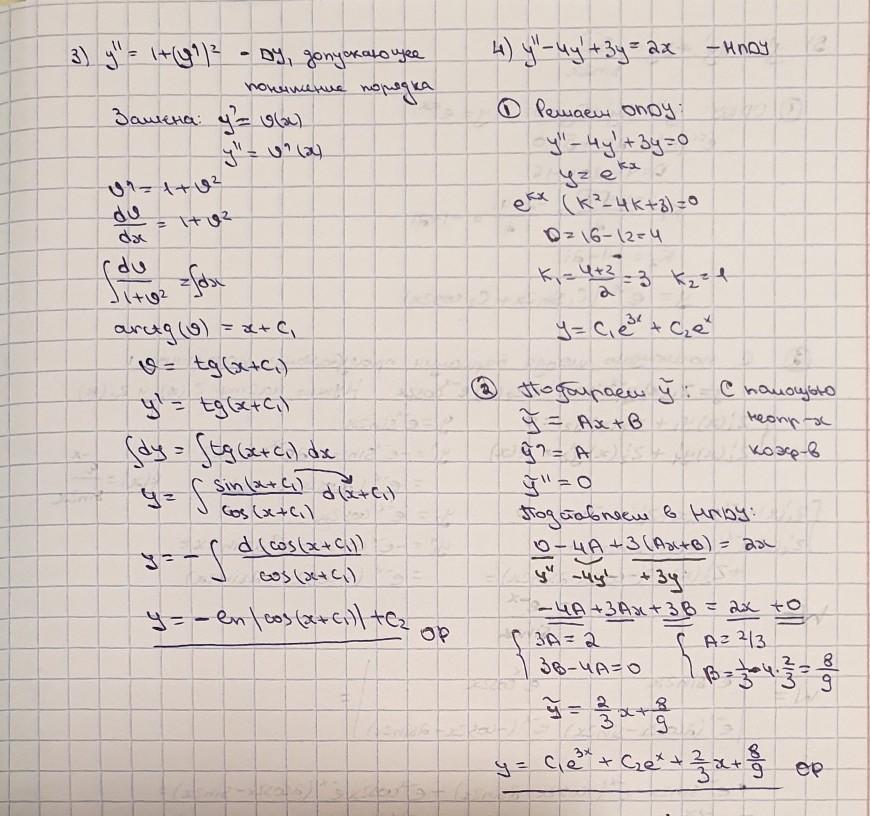 3) y'' = 1+(y')² - ДУ, допускающее
понижение порядка
Замена: y' = v(x)
y'' = v'(x)
v' = 1+v²
dv/dx = 1+v²
∫ dv/(1+v²) = ∫dx
arctg(v) = x+C₁
v = tg(x+C₁)
y' = tg(x+C₁)
∫dy = ∫tg(x+C₁)·dx
y = ∫ sin(x+C₁)/cos(x+C₁) d(x+C₁)
y = - ∫ d(cos(x+C₁))/cos(x+C₁)
y = -ln|cos(x+C₁)| + C₂ ОР
4) y''-4y'+3y = 2x - НЛДУ
① Решаем ОЛДУ:
y''-4y'+3y=0
y = e^{kx}
e^{kx} (k²-4k+3)=0
D=16-12=4
k₁ = (4+2)/2 = 3 k₂ = 1
y = C₁e^{3x} + C₂e^x
② Подбираем ỹ: С помощью
ỹ = Ax+B неопр-х
ỹ' = A коэф-в
ỹ'' = 0
Подставляем в НЛДУ:
0 - 4A + 3(Ax+B) = 2x
y'' -4y' +3y
-4A + 3Ax + 3B = 2x + 0
{ 3A = 2 { A = 2/3
3B-4A=0 B = 1/3·4·2/3 = 8/9
ỹ = 2/3 x + 8/9
y = C₁e^{3x} + C₂e^x + 2/3 x + 8/9 ОР